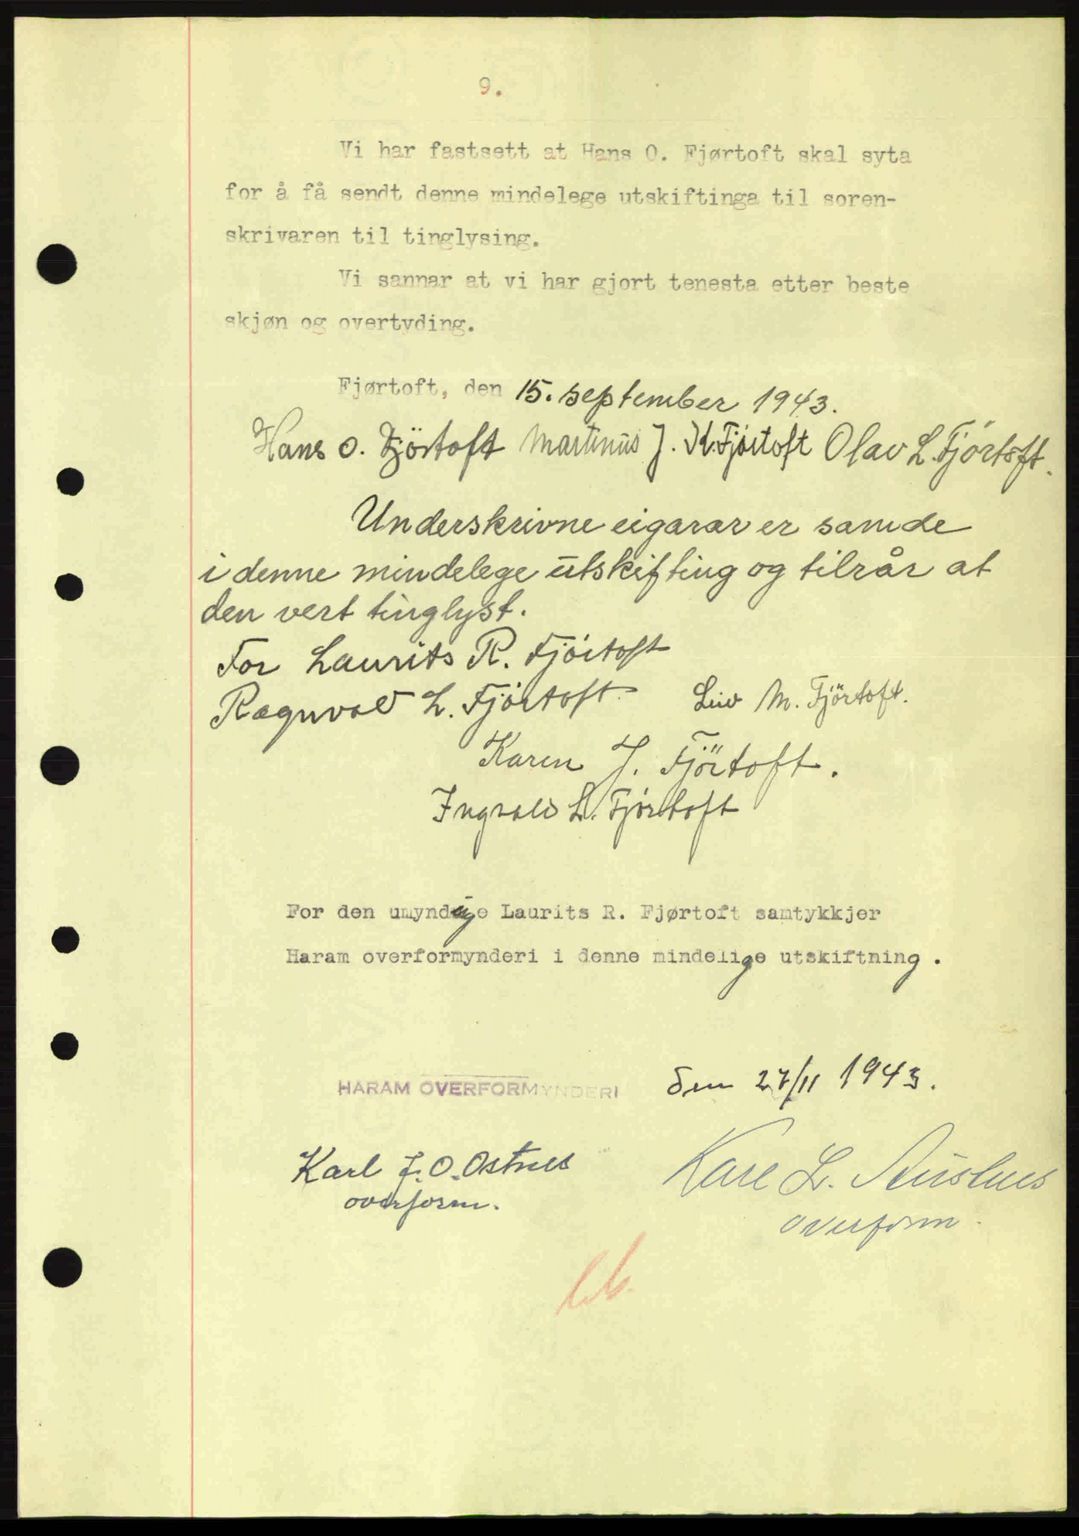 9.
Vi har fastsett at Hans O. Fjørtoft skal syta
for å få sendt denne mindelege utskiftinga til soren-
skrivaren til tinglysing.
Vi sannar at vi har gjort tenesta etter beste
skjøn og overtyding.
Fjørtoft, den 15. september 1943.
Hans O. Fjörtoft Martinus J. K. Fjörtoft Olav L. Fjörtoft.
Underskrivne eigarar er samde
i denne mindelege utskifting og tilrår at
den vert tinglyst.
For Laurits R. Fjörtoft
Ragnvald L. Fjörtoft Leiv M. Fjörtoft.
Karen J. Fjörtoft.
Ingvald L. Fjörtoft
For den umyndige Laurits R. Fjørtoft samtykkjer
Haram overformynderi i denne mindelige utskiftning.
HARAM OVERFORMYNDERI den 27/11 1943.
Karl J. O. Ostnes Kare L.
overform. overform.